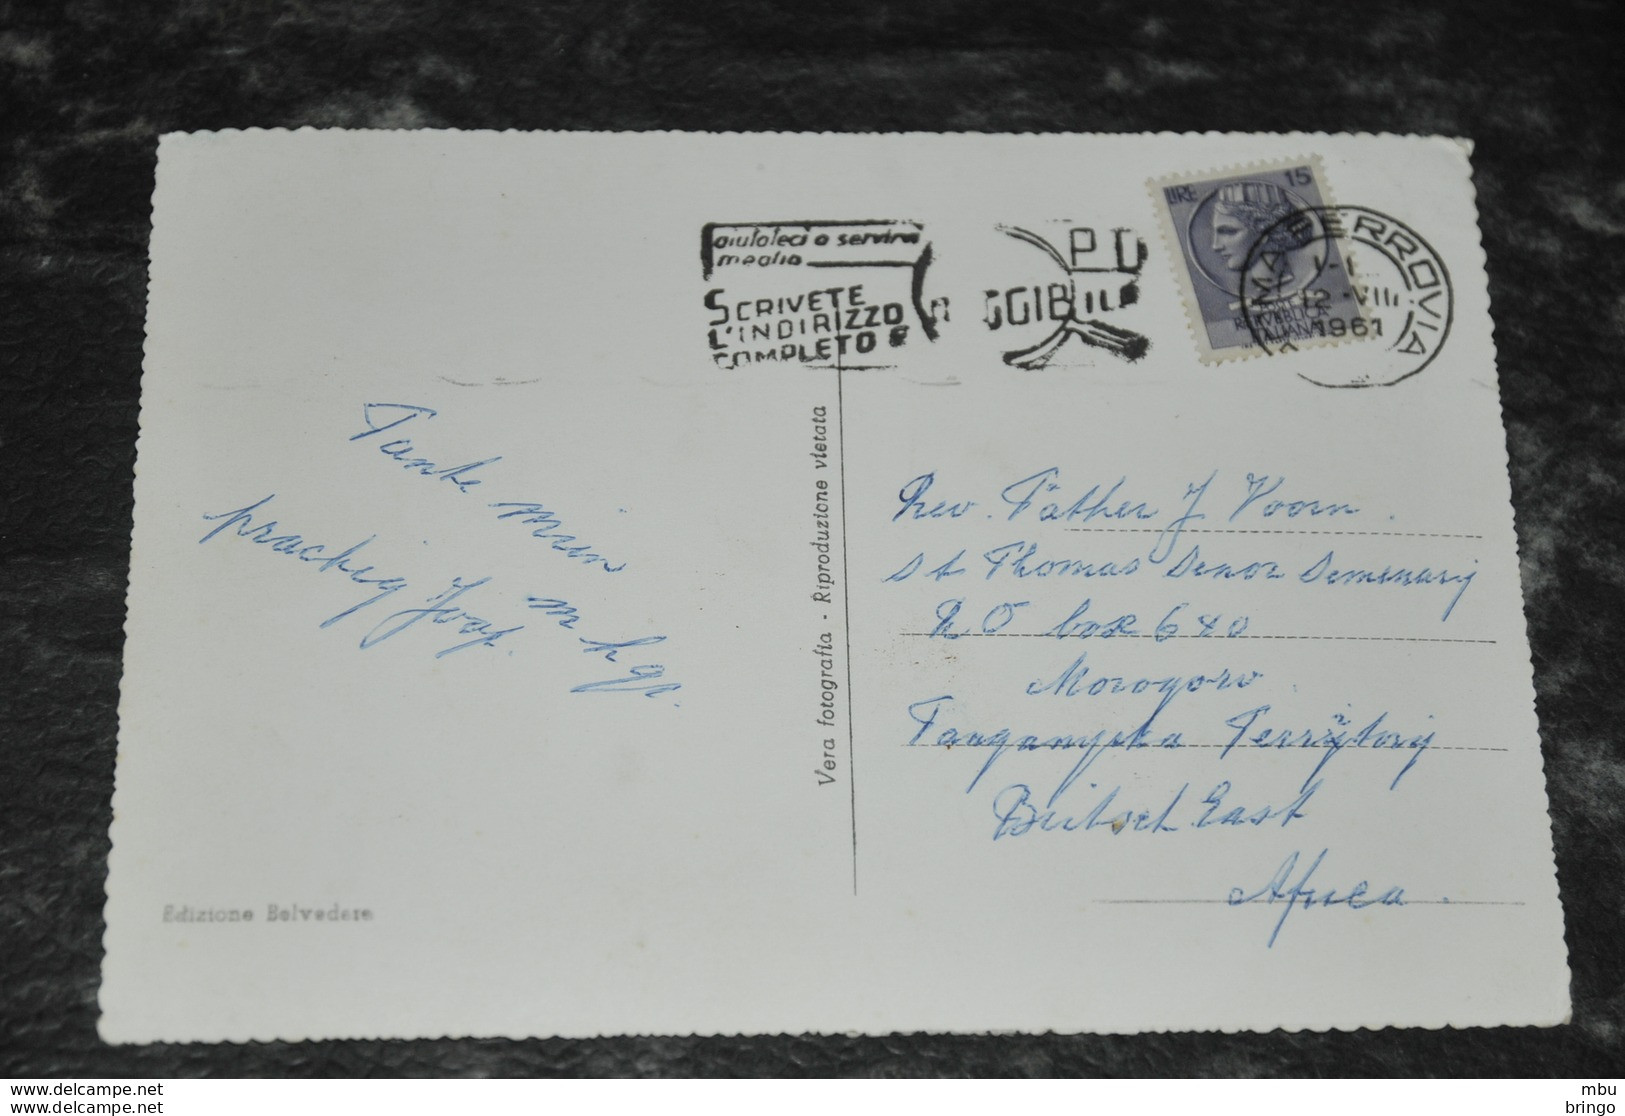 aiutateci a servirvi
meglio
SCRIVETE
L'INDIRIZZO
COMPLETO E
GGIBIL
LIRE 15
REPVBBLICA
ITALIANA
ROMA FERROVIA
12-VIII
1961
Tante min
prachig
m hgr.
Joop.
Vera fotografia - Riproduzione vietata
Rev. Father J Voorn.
St Thomas Senor Semenarij
P.O box 640
Morogoro
Taaganyeka Terrytorij
Beitsch East
Africa.
Edizione Belvedere
www.delcampe.net
www.delcampe.com
mbu
bringo